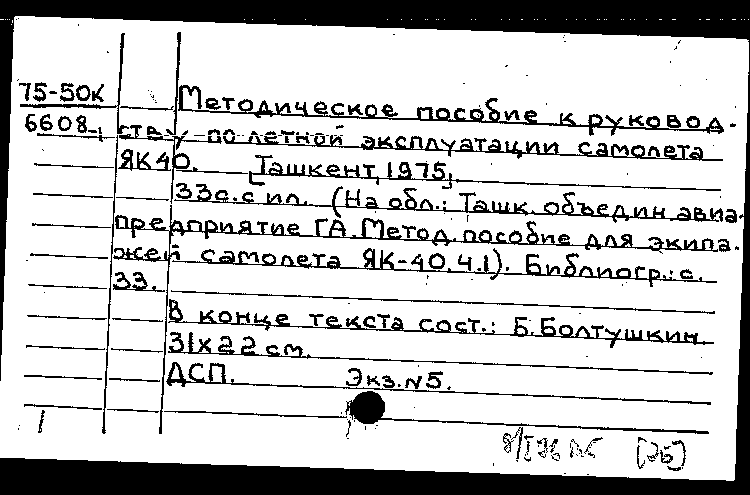 75-50К
6608-1
Методическое пособие к руковод-
ству по летной эксплуатации самолета
ЯК40. [Ташкент, 1975].
33с. с ил. (На обл.: Ташк. объедин. авиа-
предприятие ГА. Метод. пособие для экипа-
жей самолета ЯК-40. Ч.1). Библиогр.: с.
33.
В конце текста сост.: Б. Болтушкин.
31х22 см.
ДСП. Экз. N5.
8/I 76